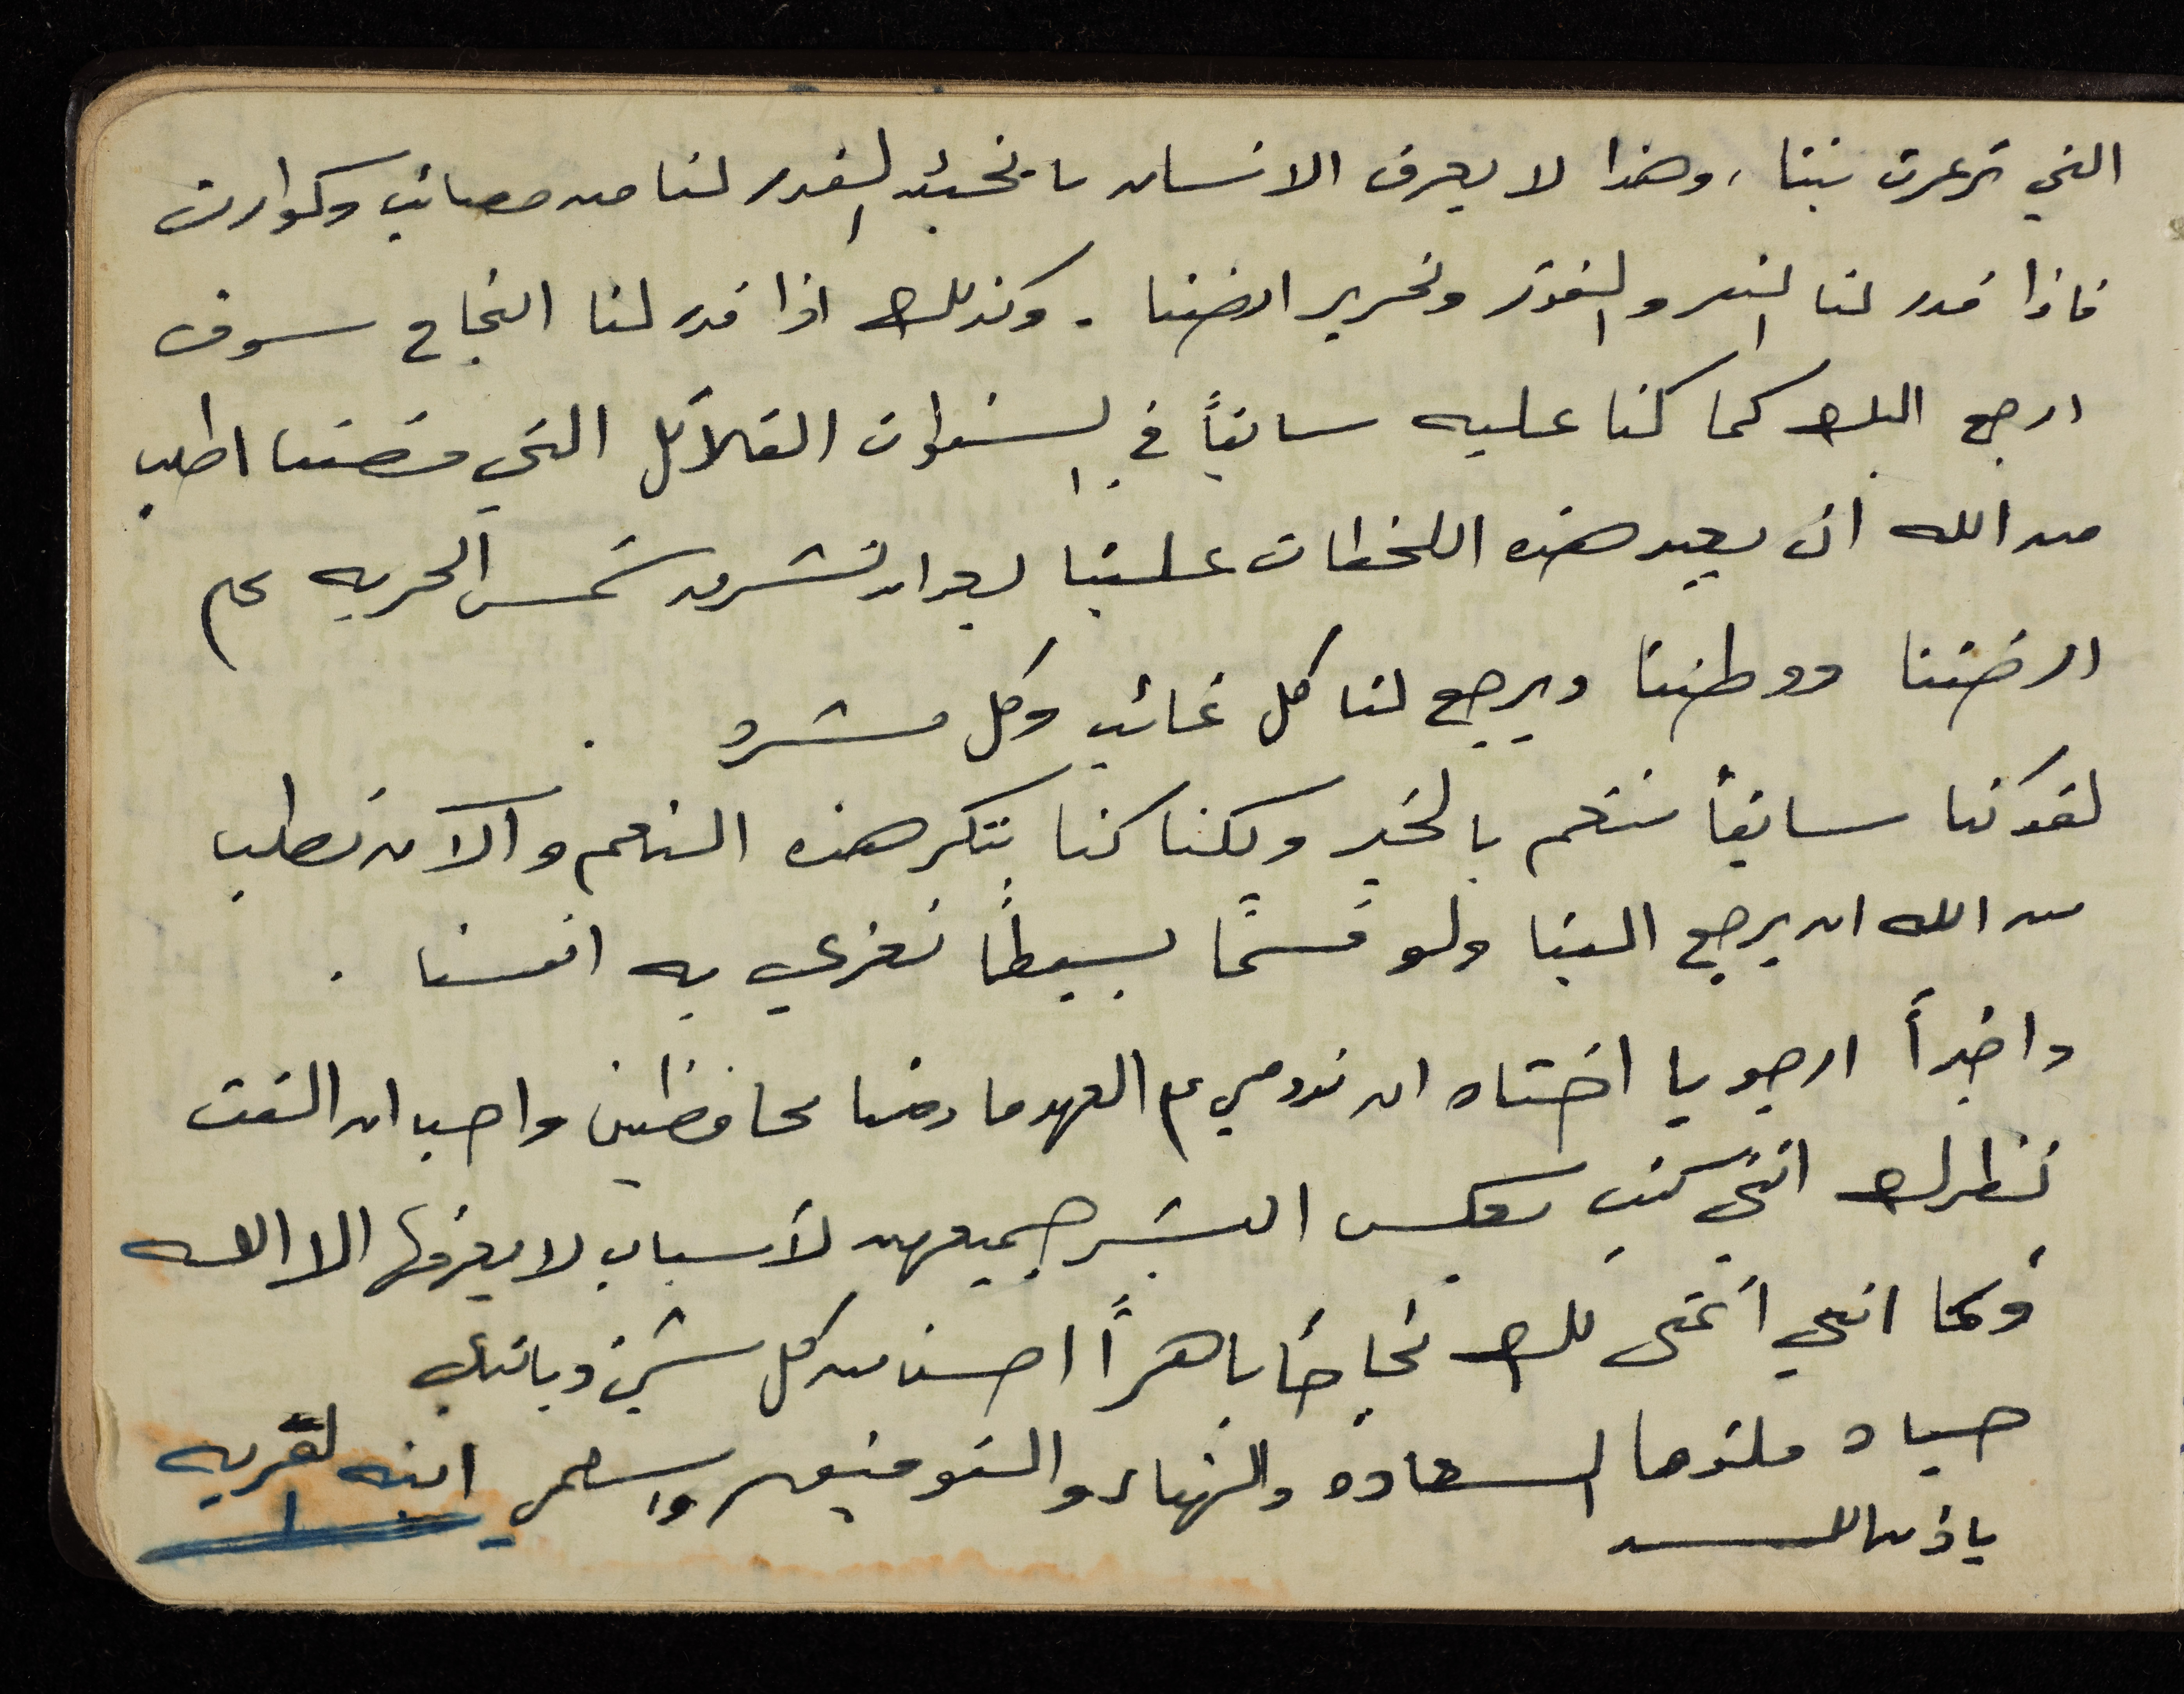 التي ترعرت بيننا، وهذا لا يعرف الانسان ما يخبئه القدر لنا من مصائب وكوارث
فاذا قدر لنا النصر والفوز وتحرير ارضنا . وكذلك اذا قدر لنا النجاح سوف
ارجع اليك كما كنا عليه سابقاً في السنوات القلائل التي مضت اطلب
من الله ان يعيد هذه اللحظات علينا بعد ان تشرق شمس الحريه على
ارضنا ووطننا ويرجع لنا كل غائب وكل مشرد .
لقد كنا سابقاً ننعم بالخير ولكنا كنا ننكر هذه النعم والآن نطلب
من الله ان يرجع الينا ولو قسمًا بسيطًا نعزي به انفسنا .
واخيراً ارجو يا اختاه ان تدومي على العهد ما دمنا محافظين واحب ان الفت
نظرك انني كنت بعكس البشر جميعهن لأسباب لا يعرفها الا الله
وكما انني أتمنى لك نجاحاً باهراً احسن من كل شيئ وبانتظارك
حياه ملئها السعاده والهناء والتوفيق واسلمي ابنه لقريه
باذن الله